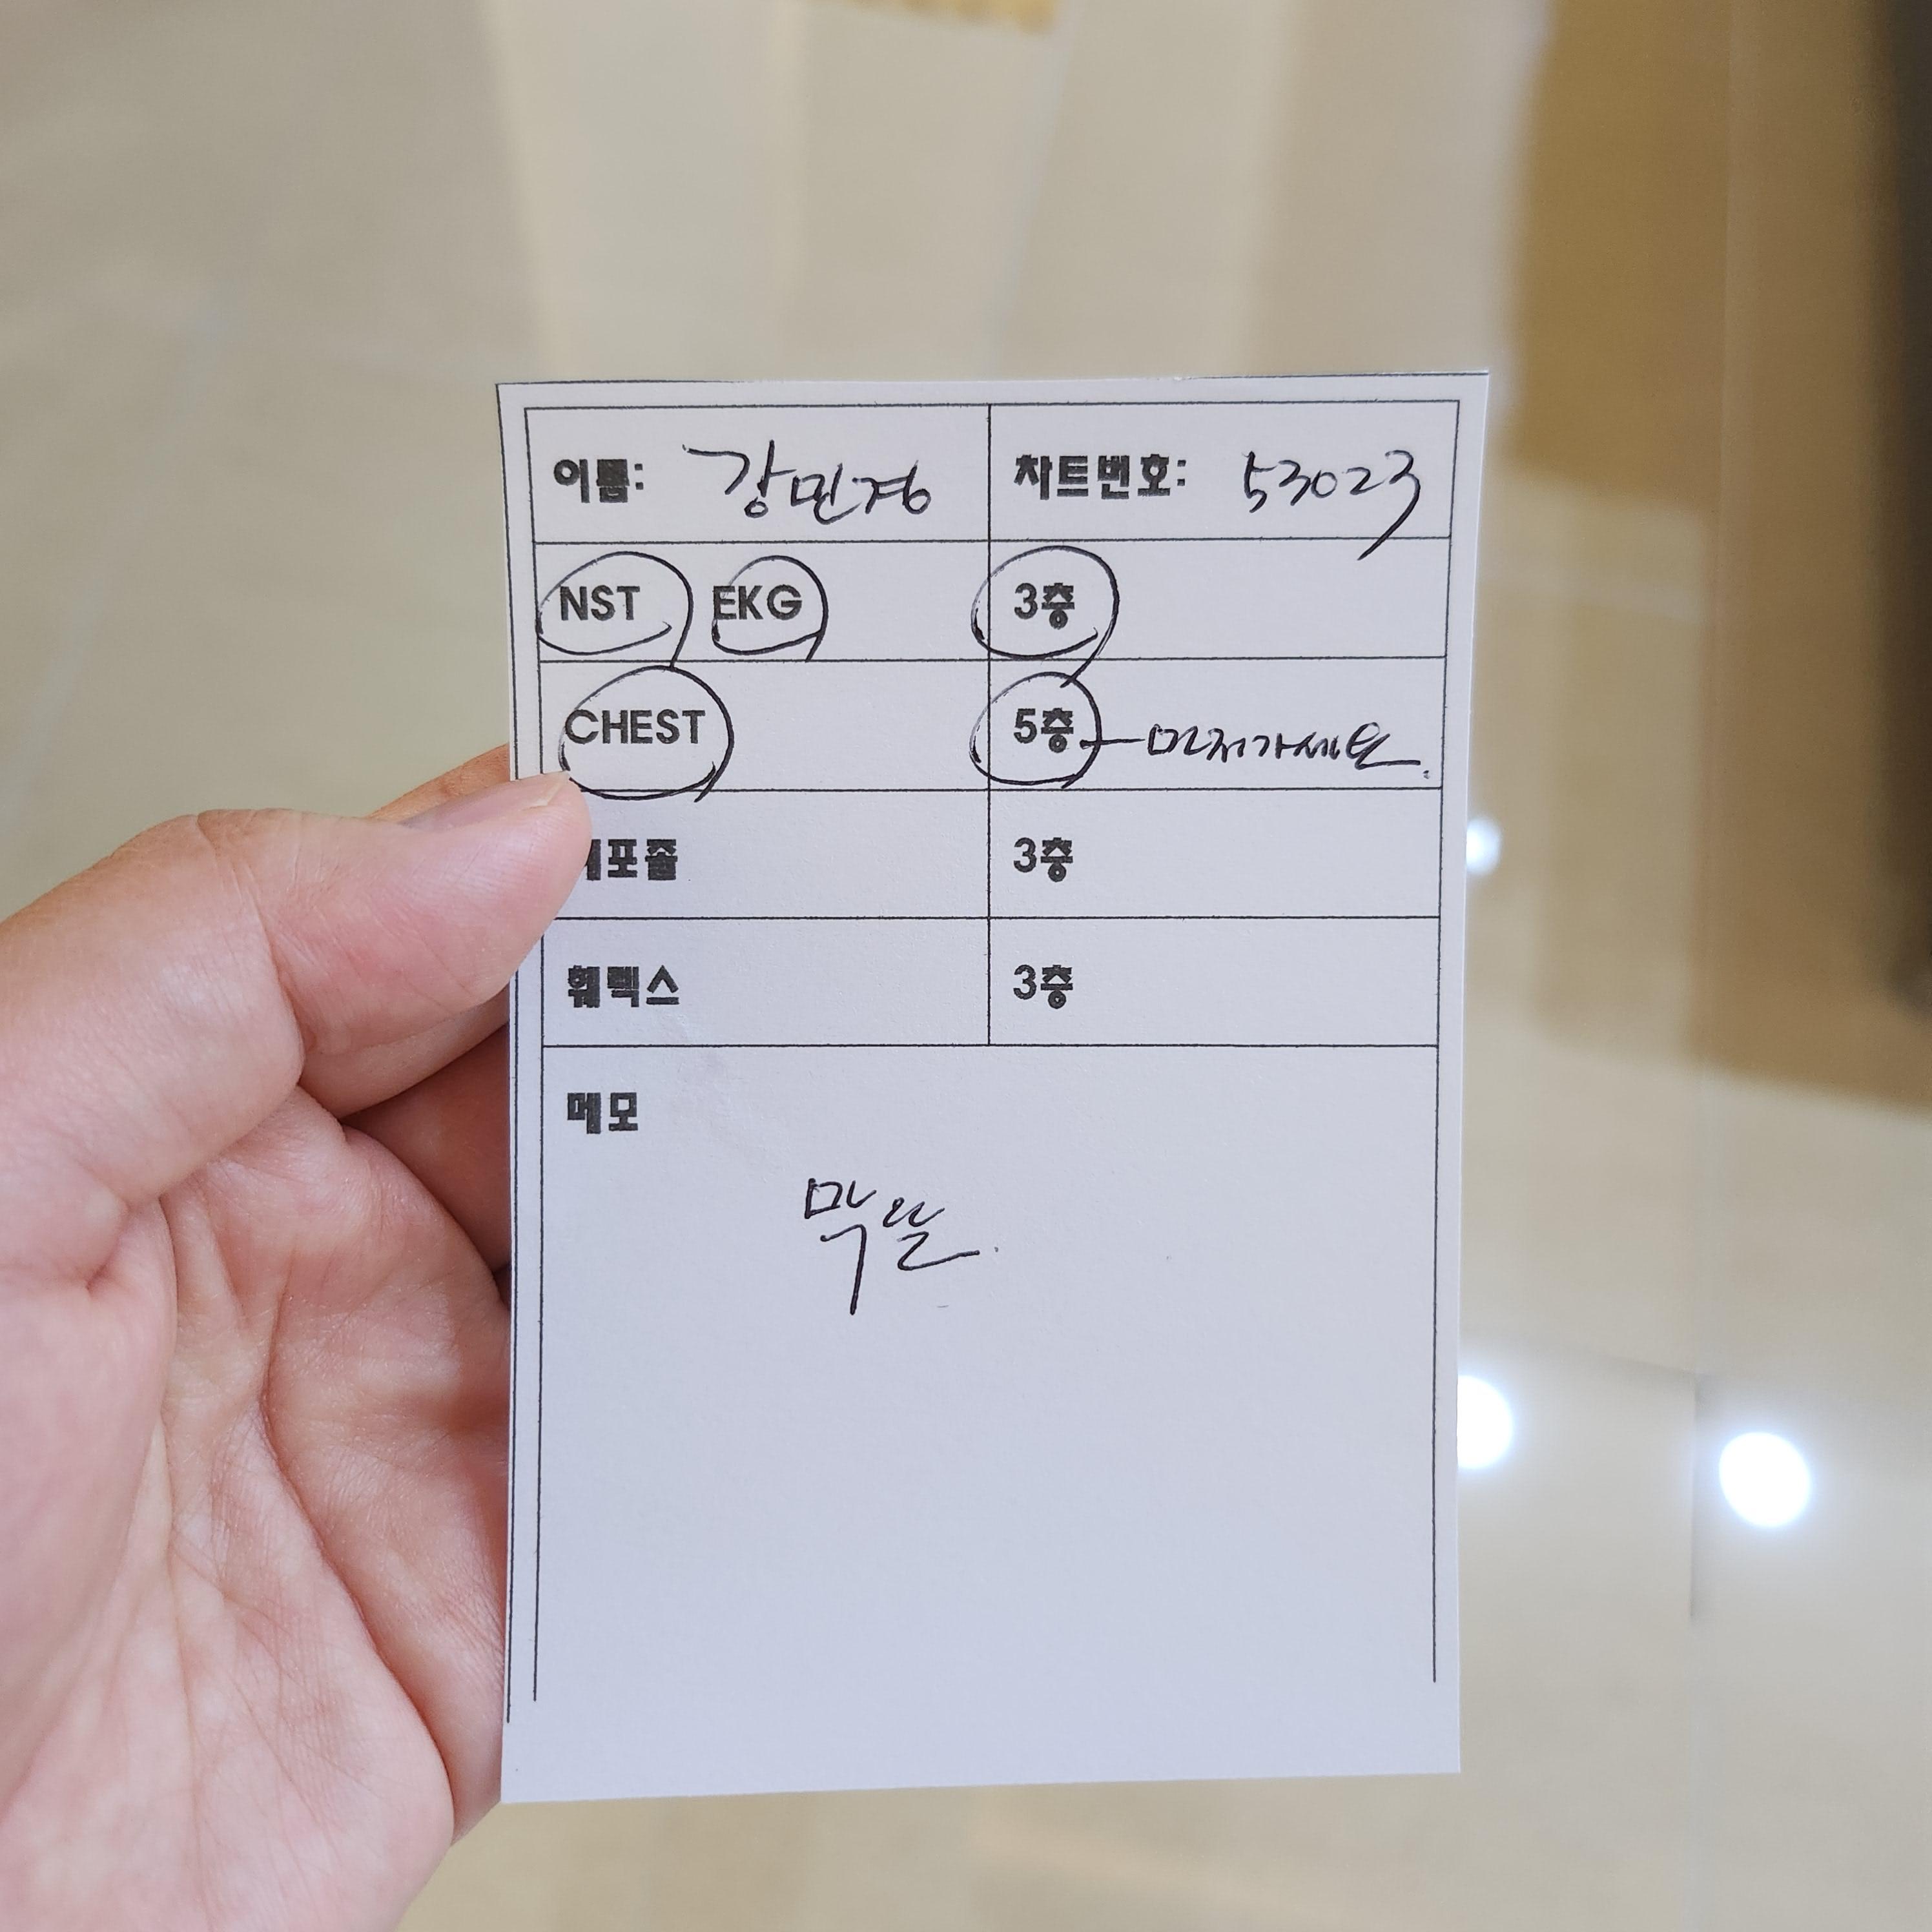 이름: 강민경 차트번호: 53023
NST EKG 3층
CHEST 5층 먼저가세요.
포졸 3층
훼렉스 3층
메모
막달.